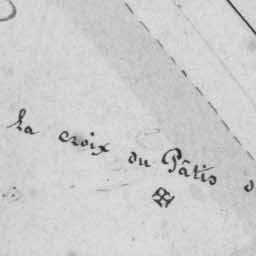 La croix du Pâtis